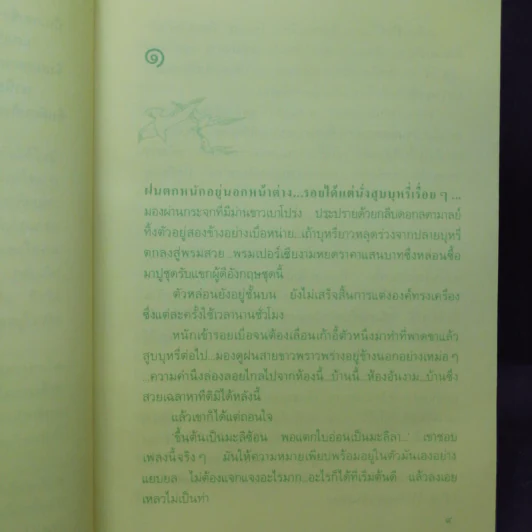 ๑
ฝนตกหนักอยู่นอกหน้าต่าง...รอยได้แต่นั่งสูบบุหรี่เรื่อย ๆ ...
มองผ่านกระจกที่มีม่านขาวเบาโปร่ง ประปรายด้วยกลีบดอกลดามาลย์
ทิ้งตัวอยู่สองข้างอย่างเบื่อหน่าย...เถ้าบุหรี่ยาวหลุดร่วงจากปลายบุหรี่
ตกลงสู่พรมสวย...พรมเปอร์เซียงามหยดราคาแสนบาทซึ่งหล่อนซื้อ
มาปูชุดรับแขกผู้ดีอังกฤษชุดนี้
ตัวหล่อนยังอยู่ชั้นบน ยังไม่เสร็จสิ้นการแต่งองค์ทรงเครื่อง
ซึ่งแต่ละครั้งใช้เวลานานชั่วโมง
หนักเข้ารอยเบื่อจนต้องเลื่อนเก้าอี้ตัวหนึ่งมาทำที่พาดขาแล้ว
สูบบุหรี่ต่อไป...มองดูฝนสายขาวพราวพร่างอยู่ข้างนอกอย่างเหม่อ ๆ
...ความคำนึงล่องลอยไกลไปจากห้องนี้...บ้านนี้...ห้องอันงาม...บ้านซึ่ง
สวยเฉลาหาที่ติมิได้หลังนี้
แล้วเขาก็ได้แต่ถอนใจ
'ขึ้นต้นเป็นมะลิซ้อน พอแตกใบอ่อนเป็นมะลิลา...' เขาชอบ
เพลงนี้จริง ๆ มันให้ความหมายเพียบพร้อมอยู่ในตัวมันเองอย่าง
แยบยล ไม่ต้องแจกแจงอะไรมาก...อะไรก็ได้ที่เริ่มต้นดี แล้วลงเอย
เหลวไม่เป็นท่า